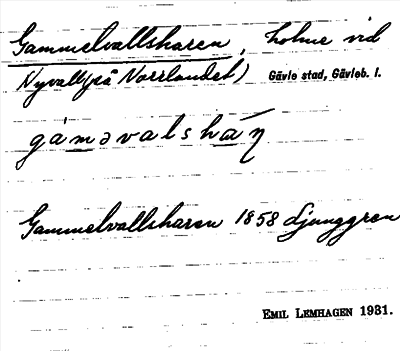 Gammelvallsharen, holme vid
Nyvall (på Norrlandet) Gävle stad, Gävleb. l.
gámǝvalshàŋ
Gammelvallsharen 1858 Ljunggren
EMIL LEMHAGEN 1931.